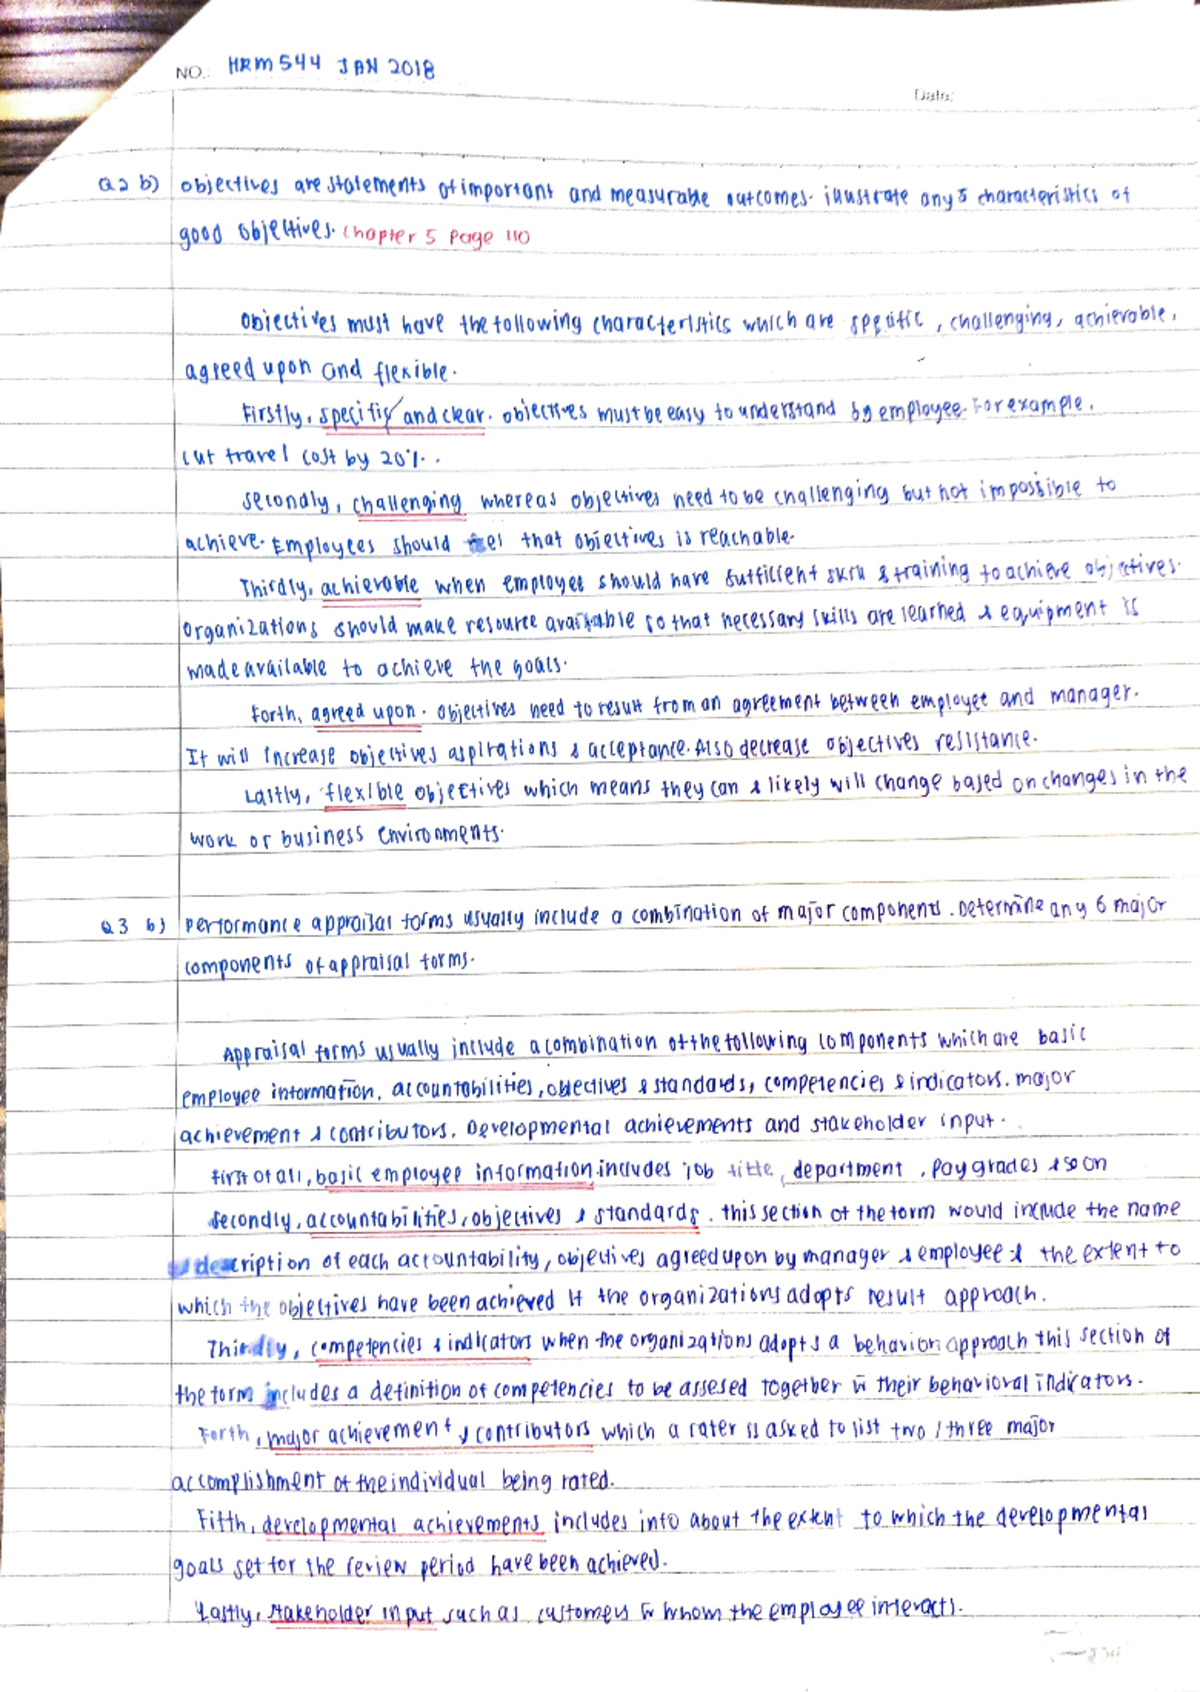 NO.: HRM544 JAN 2018
Date:
Q2 b) Objectives are statements of important and measurable outcomes. illustrate any 5 characteristics of
good objectives. Chapter 5 Page 110
Objectives must have the following characteristics which are specific, challenging, achievable,
agreed upon and flexible.
Firstly, specific and clear. objectives must be easy to understand by employee. For example,
cut travel cost by 20%.
Secondly, challenging whereas objectives need to be challenging but not impossible to
achieve. Employees should feel that objectives is reachable.
Thirdly, achievable when employee should have sufficient skill & training to achieve objectives.
Organizations should make resource available so that necessary skills are learned & equipment is
made available to achieve the goals.
Forth, agreed upon. objectives need to result from an agreement between employee and manager.
It will increase objectives aspirations & acceptance. Also decrease objectives resistance.
Lastly, flexible objectives which means they can & likely will change based on changes in the
work or business environments.
Q3 b) Performance appraisal forms usually include a combination of major components. Determine any 6 major
components of appraisal forms.
Appraisal forms usually include a combination of the following components which are basic
employee information, accountabilities, objectives & standards, competencies & indicators, major
achievement & contributors, Developmental achievements and stakeholder input.
First of all, basic employee information includes job title, department, pay grades & so on
Secondly, accountabilities, objectives & standards. this section of the form would include the name
description of each accountability, objectives agreed upon by manager & employee & the extent to
which the objectives have been achieved If the organizations adopts result approach.
Thirdly, competencies & indicators when the organizations adopts a behavior approach this section of
the form includes a definition of competencies to be assesed together w their behavioral indicators.
Forth, major achievement & contributors which a rater is asked to list two / three major
accomplishment of the individual being rated.
Fifth, developmental achievements includes info about the extent to which the developmental
goals set for the review period have been achieved.
Lastly, stakeholder input such as customers w whom the employee interacts.